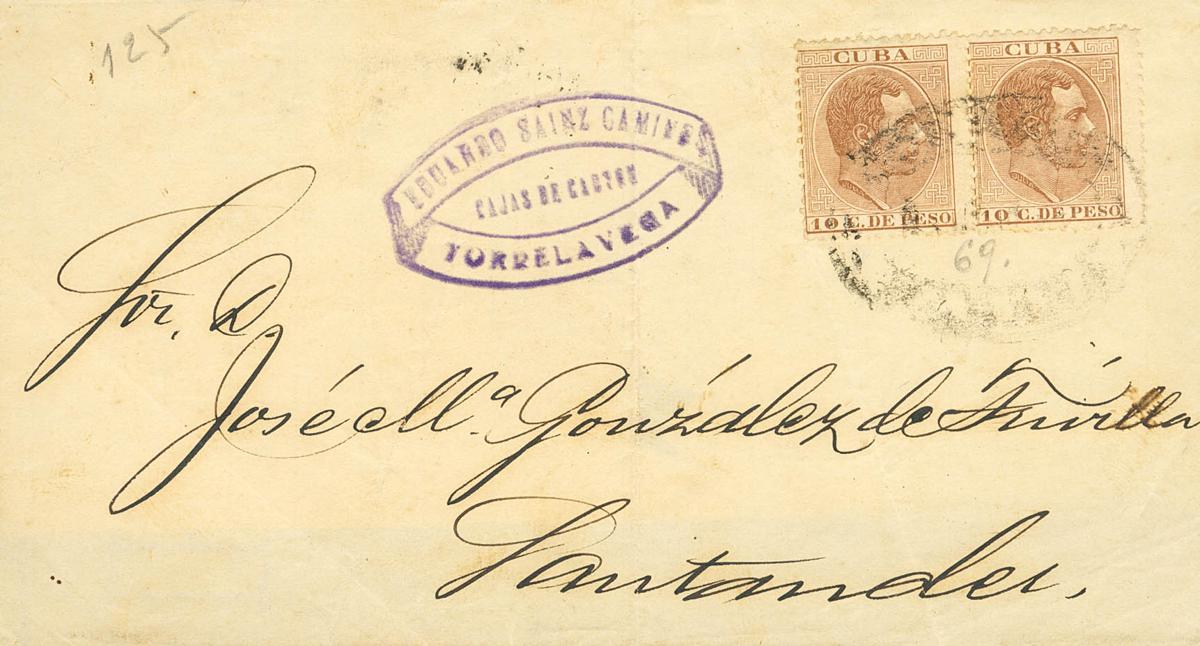 125
EDUARDO SAINZ CAMINO
CAJAS DE CARTON
TORRELAVEGA
CUBA
10 C. DE PESO
CUBA
10 C. DE PESO
69.
Sor. D.
José Ma. González de
Santander.